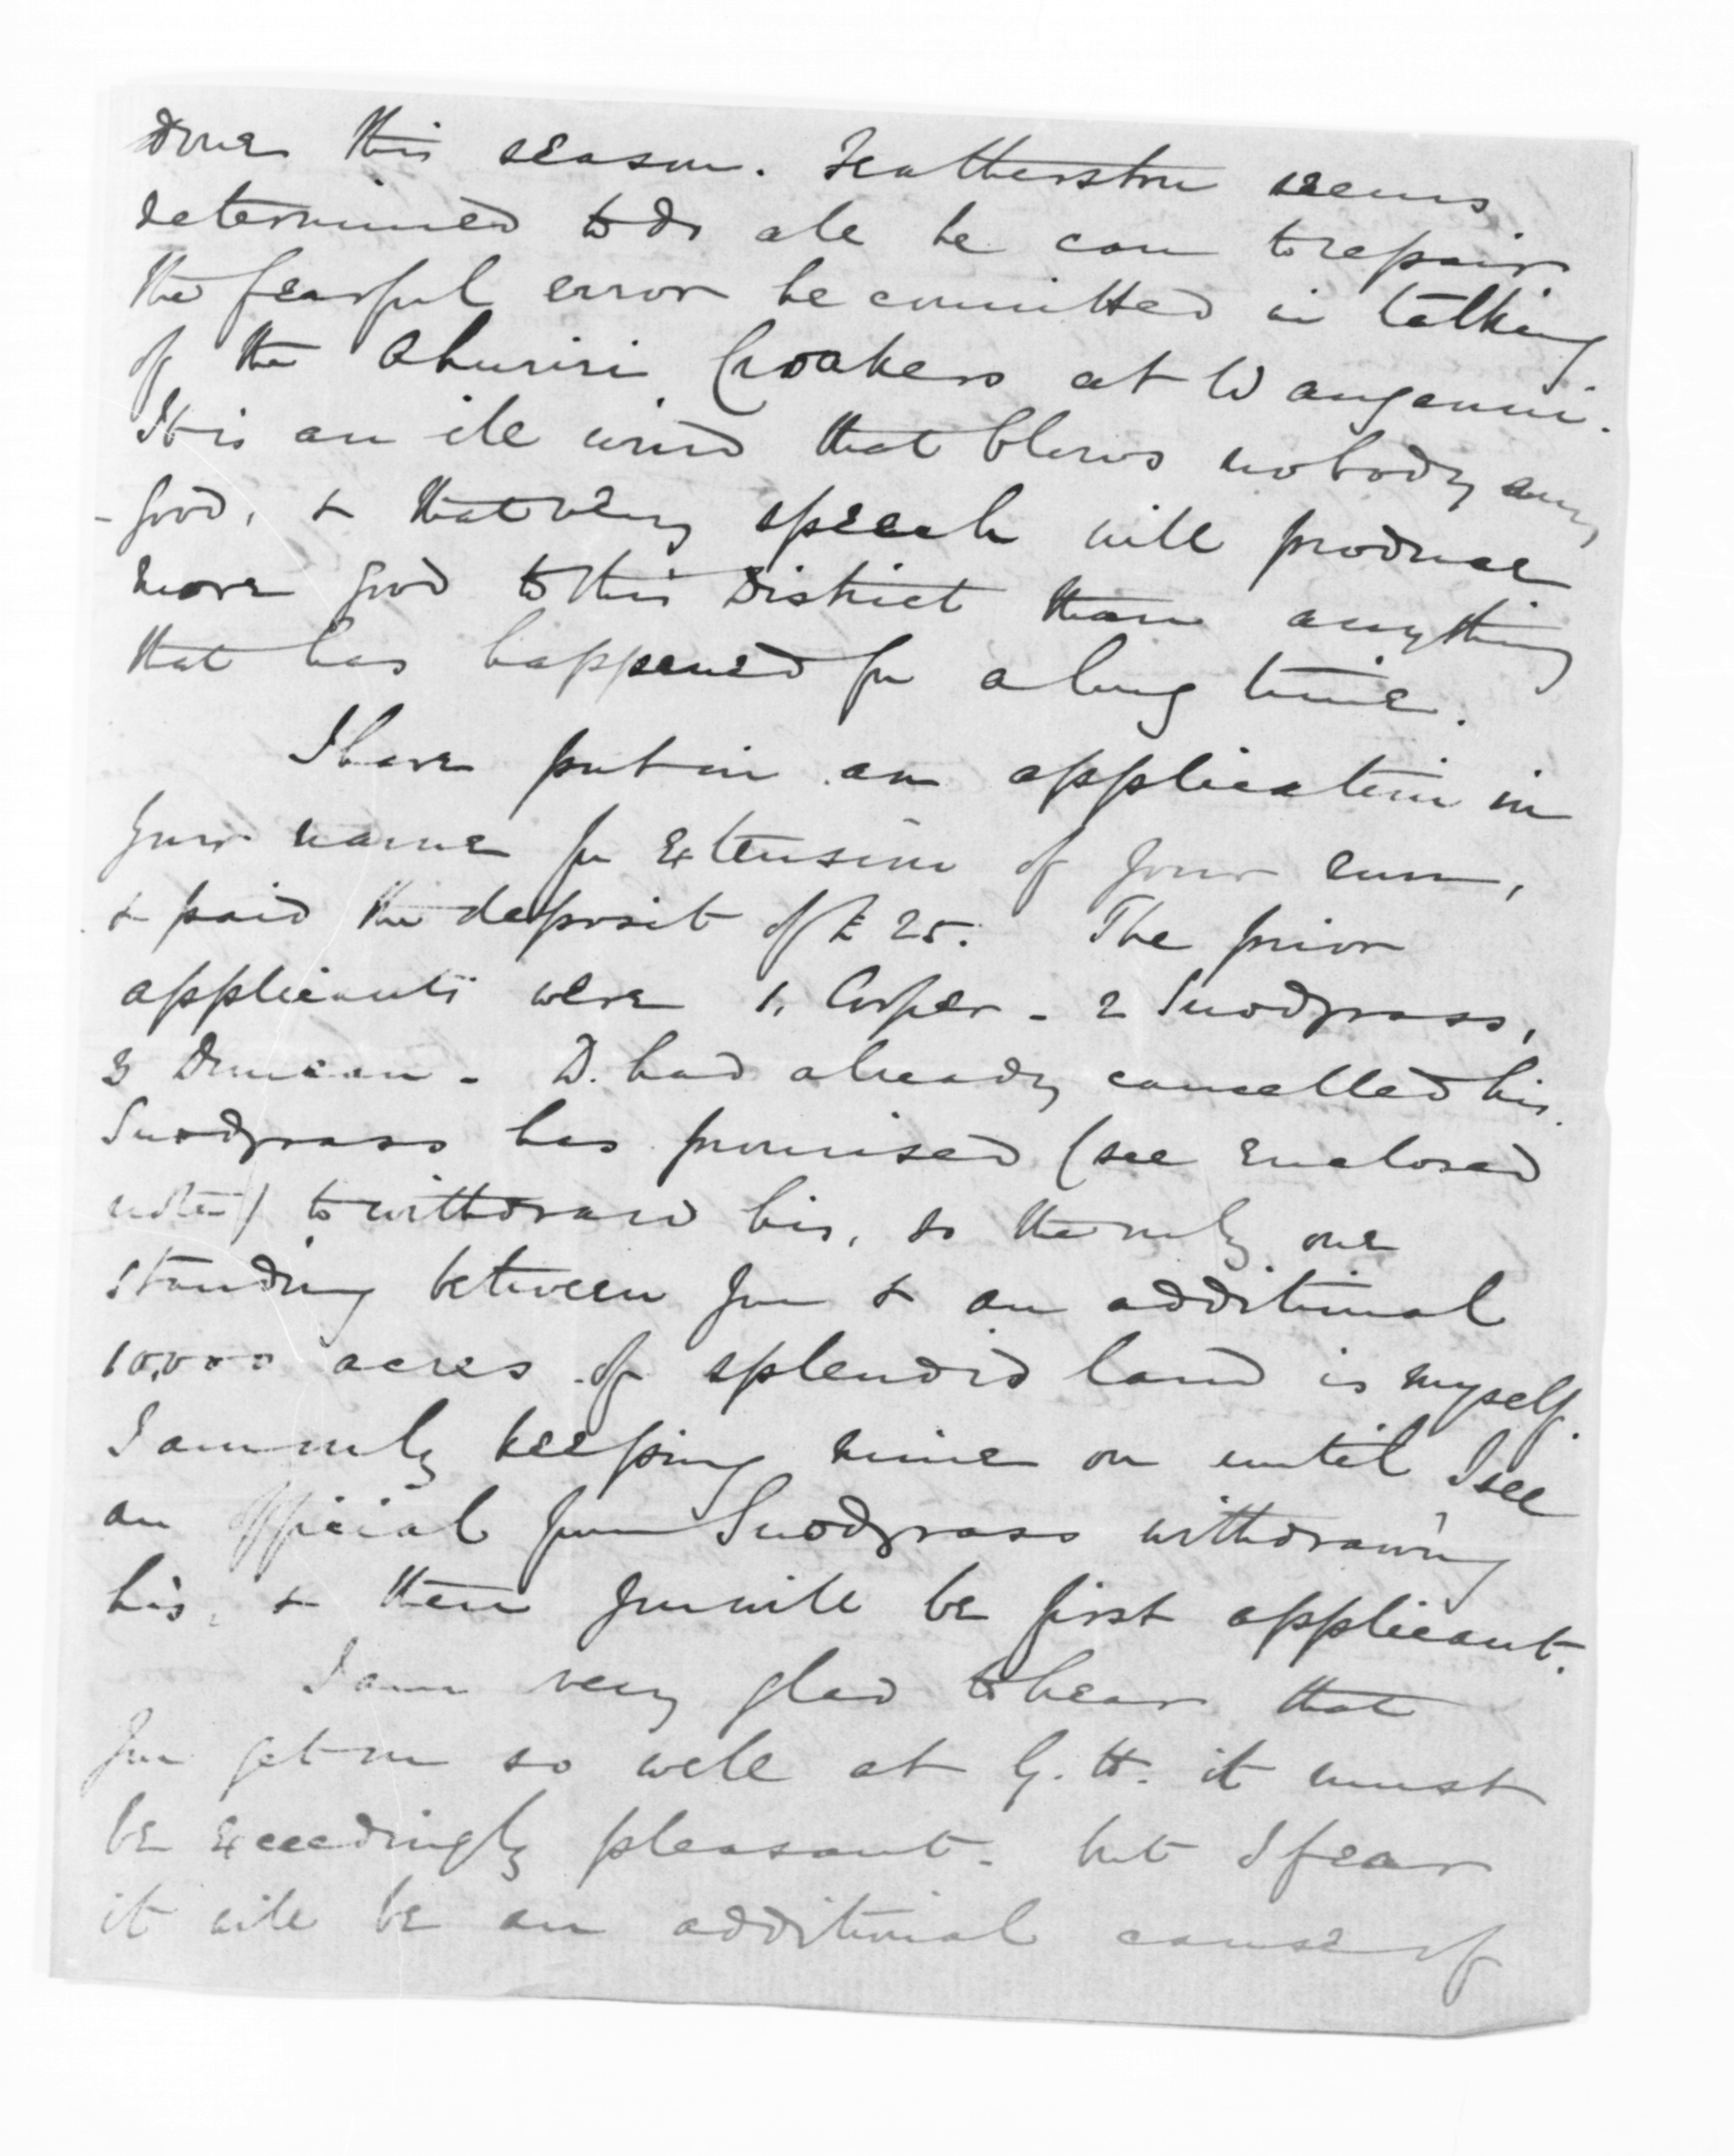 done this season. Featherston seems
determined to do all he can to repair
the fearful error he committed in talking
of the Ahuriri Croakers at Wanganui.
It is an ill wind that blows nobody any
good, & that very speech will produce
more good to this District than anything
that has happened for a long time.
I have put in an application in
your name for extension of your run,
& paid the deposit of £25. The prior
applicants were 1. Cooper - 2 Snodgrass,
3 Duncan - D. had already cancelled his.
Snodgrass has promised (see enclosed
note) to withdraw his, so the only one
standing between you & an additional
10,000 acres of splendid land is myself.
I am only keeping mine on until I see
an official from Snodgrass withdrawing
his, & then you will be first applicant.
I am very glad to hear that
you get on so well at G. H. it must
be exceedingly pleasant - but I fear
it will be an additional cause of